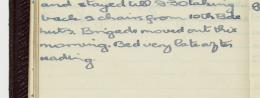 and stayed till 9-30 taking
back 2 chairs from 10th Bde
huts. Brigade moved out this
morning. Bed very late after
reading.